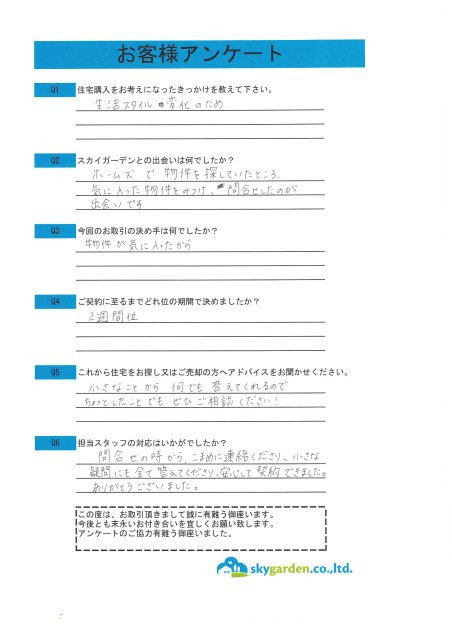 お客様アンケート
Q1 住宅購入をお考えになったきっかけを教えて下さい。
生活スタイルの変化のため
Q2 スカイガーデンとの出会いは何でしたか？
ホームズで物件を探していたところ、
気に入った物件をみつけ、問合せしたのが
出会いです
Q3 今回のお取引の決め手は何でしたか？
物件が気に入ったから
Q4 ご契約に至るまでどれ位の期間で決めましたか？
2週間位
Q5 これから住宅をお探し又はご売却の方へアドバイスをお聞かせください。
小さなことから何でも答えてくれるので
ちょっとしたことでもぜひご相談ください！
Q6 担当スタッフの対応はいかがでしたか？
問合せの時から、こまめに連絡くださり、小さな
疑問にも全て答えてくださり、安心して契約できました。
ありがとうございました。
この度は、お取引頂きまして誠に有難う御座います。
今後とも末永いお付き合いを宜しくお願い致します。
アンケートのご協力有難う御座いました。
skygarden.co.,ltd.